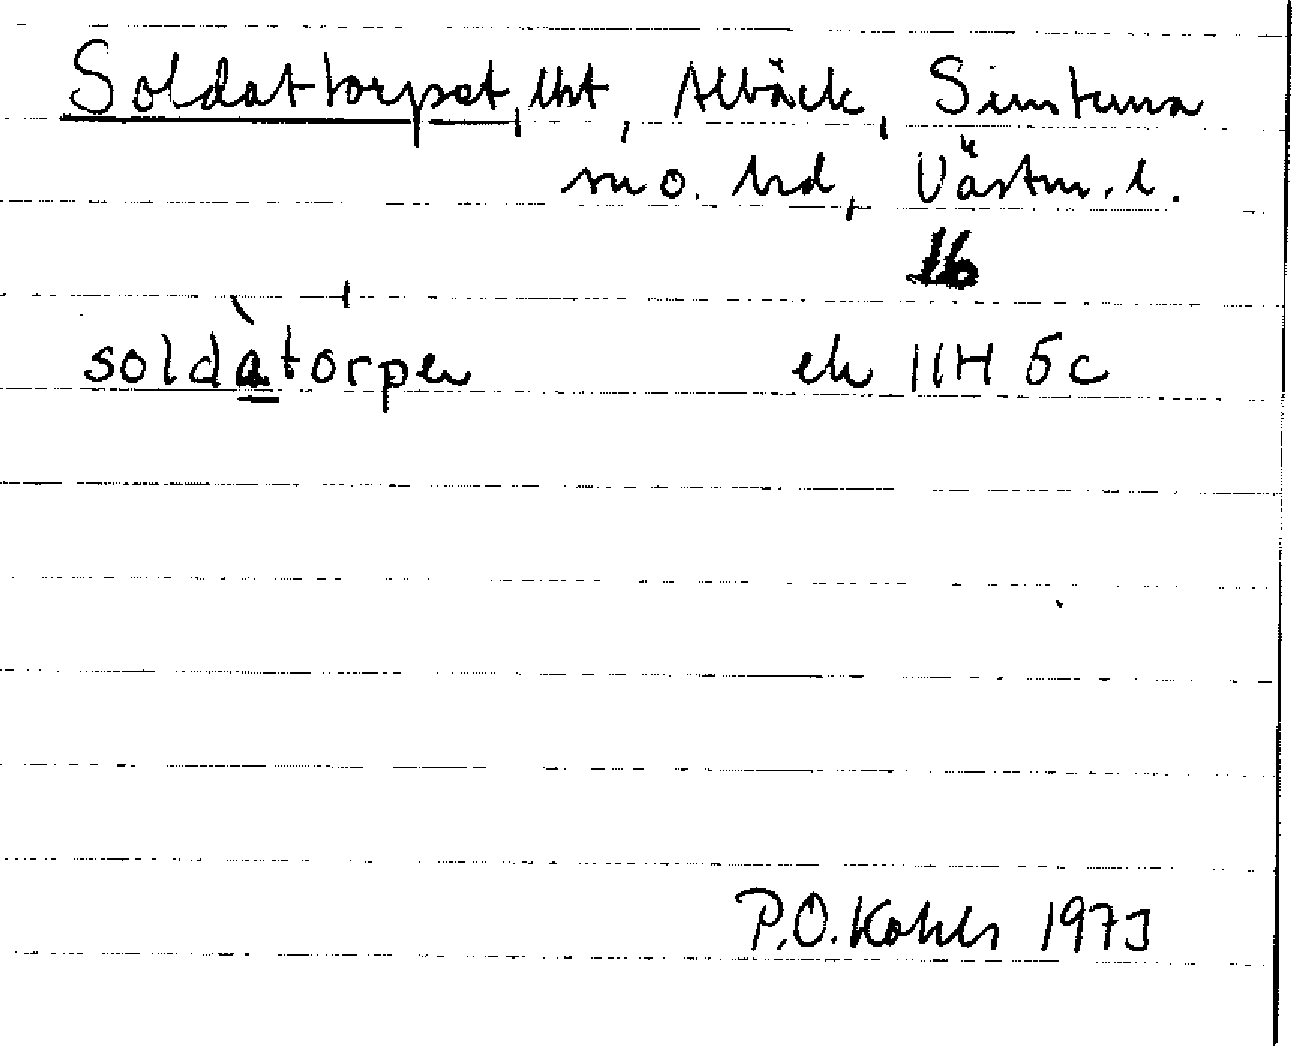 Soldattorpet, lht, Albäck, Simtuna
sn o. hd, Västm. l.
16
soldàtorpen ek 11H 5c
P.O. Kohls 1973